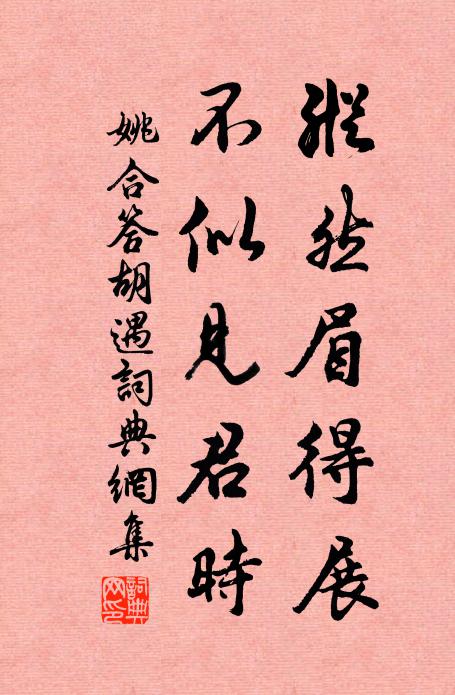 縱然眉得展
不似見君時
姚合答胡遇詞典網集
詞典网印